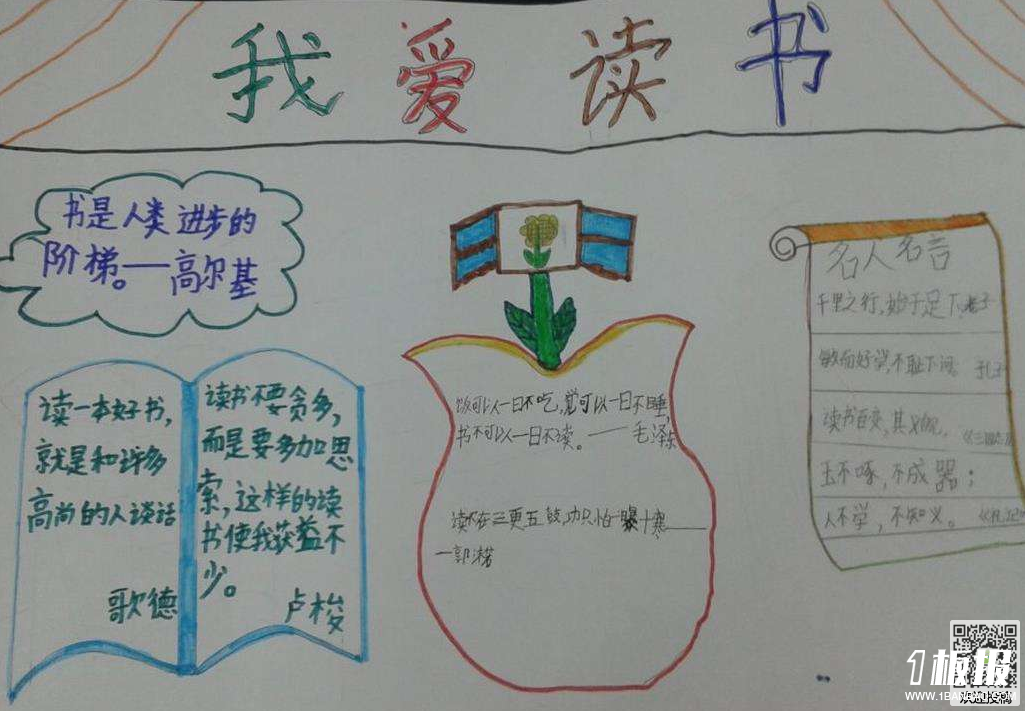 我爱读书
书是人类进步的
阶梯。——高尔基
读一本好书,
就是和许多
高尚的人谈话
歌德
读书不要贪多,
而是要多加思
索,这样的读
书使我获益不
少。
卢梭
饭可以一日不吃,觉可以一日不睡,
书不可以一日不读。——毛泽东
读不在三更五鼓,功只怕一曝十寒——
—郭沫若
名人名言
千里之行,始于足下。老子
敏而好学,不耻下问。孔子
读书百变,其义见。《三国志
玉不啄,不成器;
人不学,不知义。《礼记
1板报
WWW.1BANBAO.COM
欢迎投稿